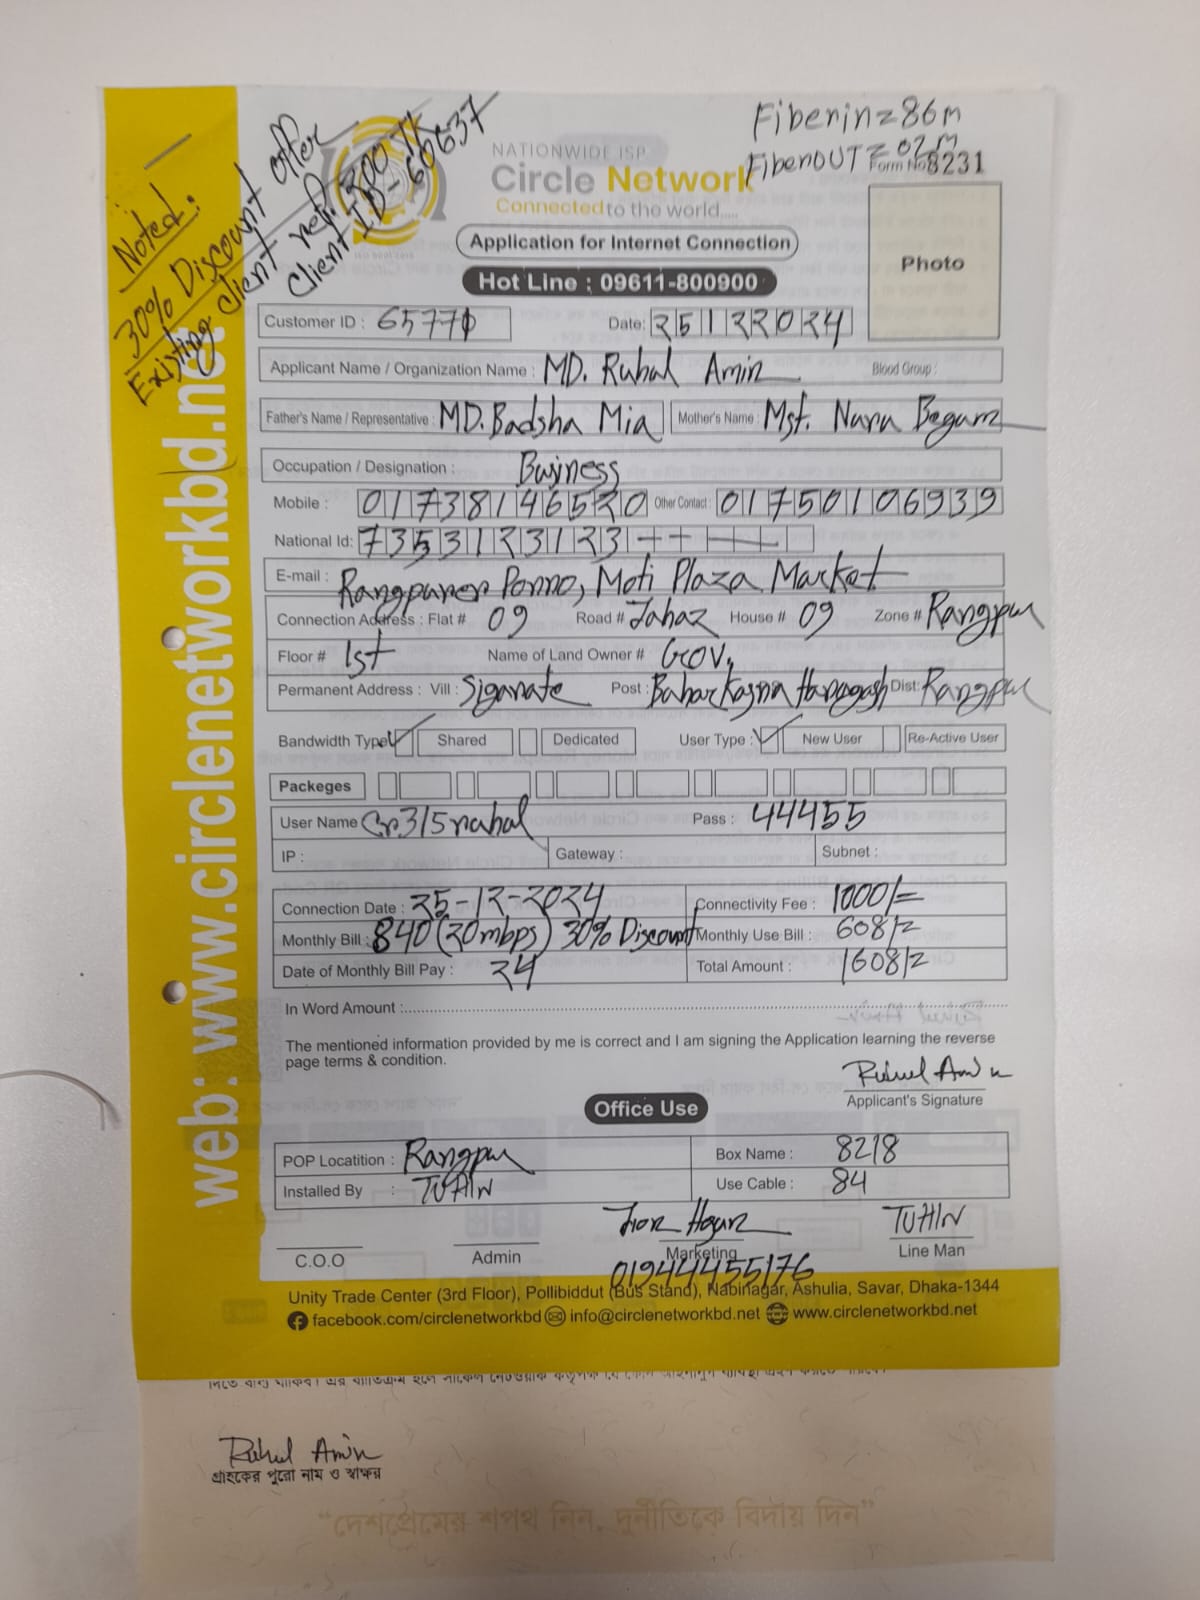 Fiberin=86m
FiberOUT=02m
Form No 8231
Noted:
30% Discount offer
Existing client ref. 300 TK
Client ID-60637
NATIONWIDE ISP
Circle Network
Connected to the world.....
Application for Internet Connection
Hot Line : 09611-800900
Photo
Customer ID : 65771 Date: 25122024
Applicant Name / Organization Name : MD. Ruhul Amin Blood Group :
Father's Name / Representative : MD. Badsha Mia Mother's Name : Mst. Nuru Begum
Occupation / Designation : Business
Mobile : 01738146520 Other Contact : 01750106939
National Id: 7353123123
E-mail : Rangpurer Ponno, Moti Plaza Market
Connection Address : Flat # 09 Road # Jahaz House # 09 Zone # Rangpur
Floor # 1st Name of Land Owner # Gov,
Permanent Address : Vill : Siganate Post : Dist: Rangpur
Bandwidth Type Shared Dedicated User Type : New User Re-Active User
Packeges
User Name Pass : 44455
IP : Gateway : Subnet :
Connection Date : 25-12-2024 Connectivity Fee : 1000/=
Monthly Bill : 840 (20mbps) 30% Discount Monthly Use Bill : 608/=
Date of Monthly Bill Pay : 24 Total Amount : 1608/=
In Word Amount :
The mentioned information provided by me is correct and I am signing the Application learning the reverse
page terms & condition.
Ruhul Amin
Applicant's Signature
Office Use
POP Locatition : Rangpur Box Name : 8218
Installed By : TUHIN Use Cable : 84
TUHIN
C.O.O Admin Marketing Line Man
01944455176
Unity Trade Center (3rd Floor), Pollibiddut (Bus Stand), Nabinagar, Ashulia, Savar, Dhaka-1344
facebook.com/circlenetworkbd info@circlenetworkbd.net www.circlenetworkbd.net
web: www.circlenetworkbd.net
Ruhul Amin
গ্রাহকের পুরো নাম ও স্বাক্ষর
“দেশপ্রেমের শপথ নিন, দুর্নীতিকে বিদায় দিন”